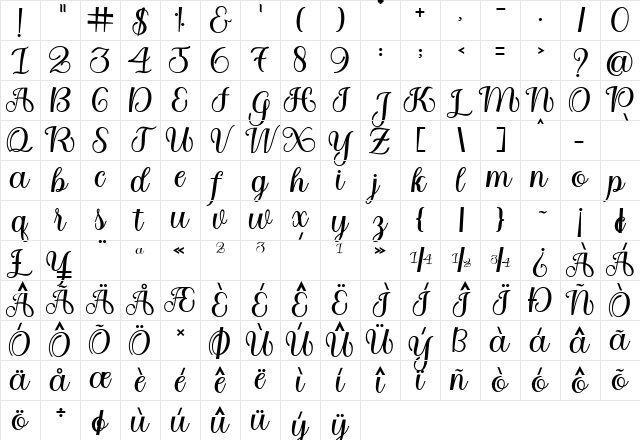 ! " # $ % & ' ( ) * + , − . / 0
1 2 3 4 5 6 7 8 9 : ; < = > ? @
A B C D E F G H I J K L M N O P
Q R S T U V W X Y Z [ \ ] ^ - `
a b c d e f g h i j k l m n o p
q r s t u v w x y z { | } ~ ¡ ¢
£ ¥ ¨ ª « ² ³ ´ ¹ » ¼ ½ ¾ ¿ À Á
Â Ã Ä Å Æ È É Ê Ë Ì Í Î Ï Ð Ñ Ò
Ó Ô Õ Ö × Ø Ù Ú Û Ü Ý ß à á â ã
ä å æ è é ê ë ì í î ï ñ ò ó ô õ
ö ÷ ø ù ú û ü ý ÿ